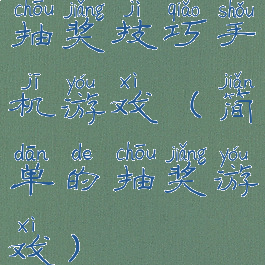 chōu jiǎng jì qiǎo shǒu
抽奖技巧手
jī yóu xì jiǎn
机游戏（简
dān de chōu jiǎng yóu
单的抽奖游
xì
戏）